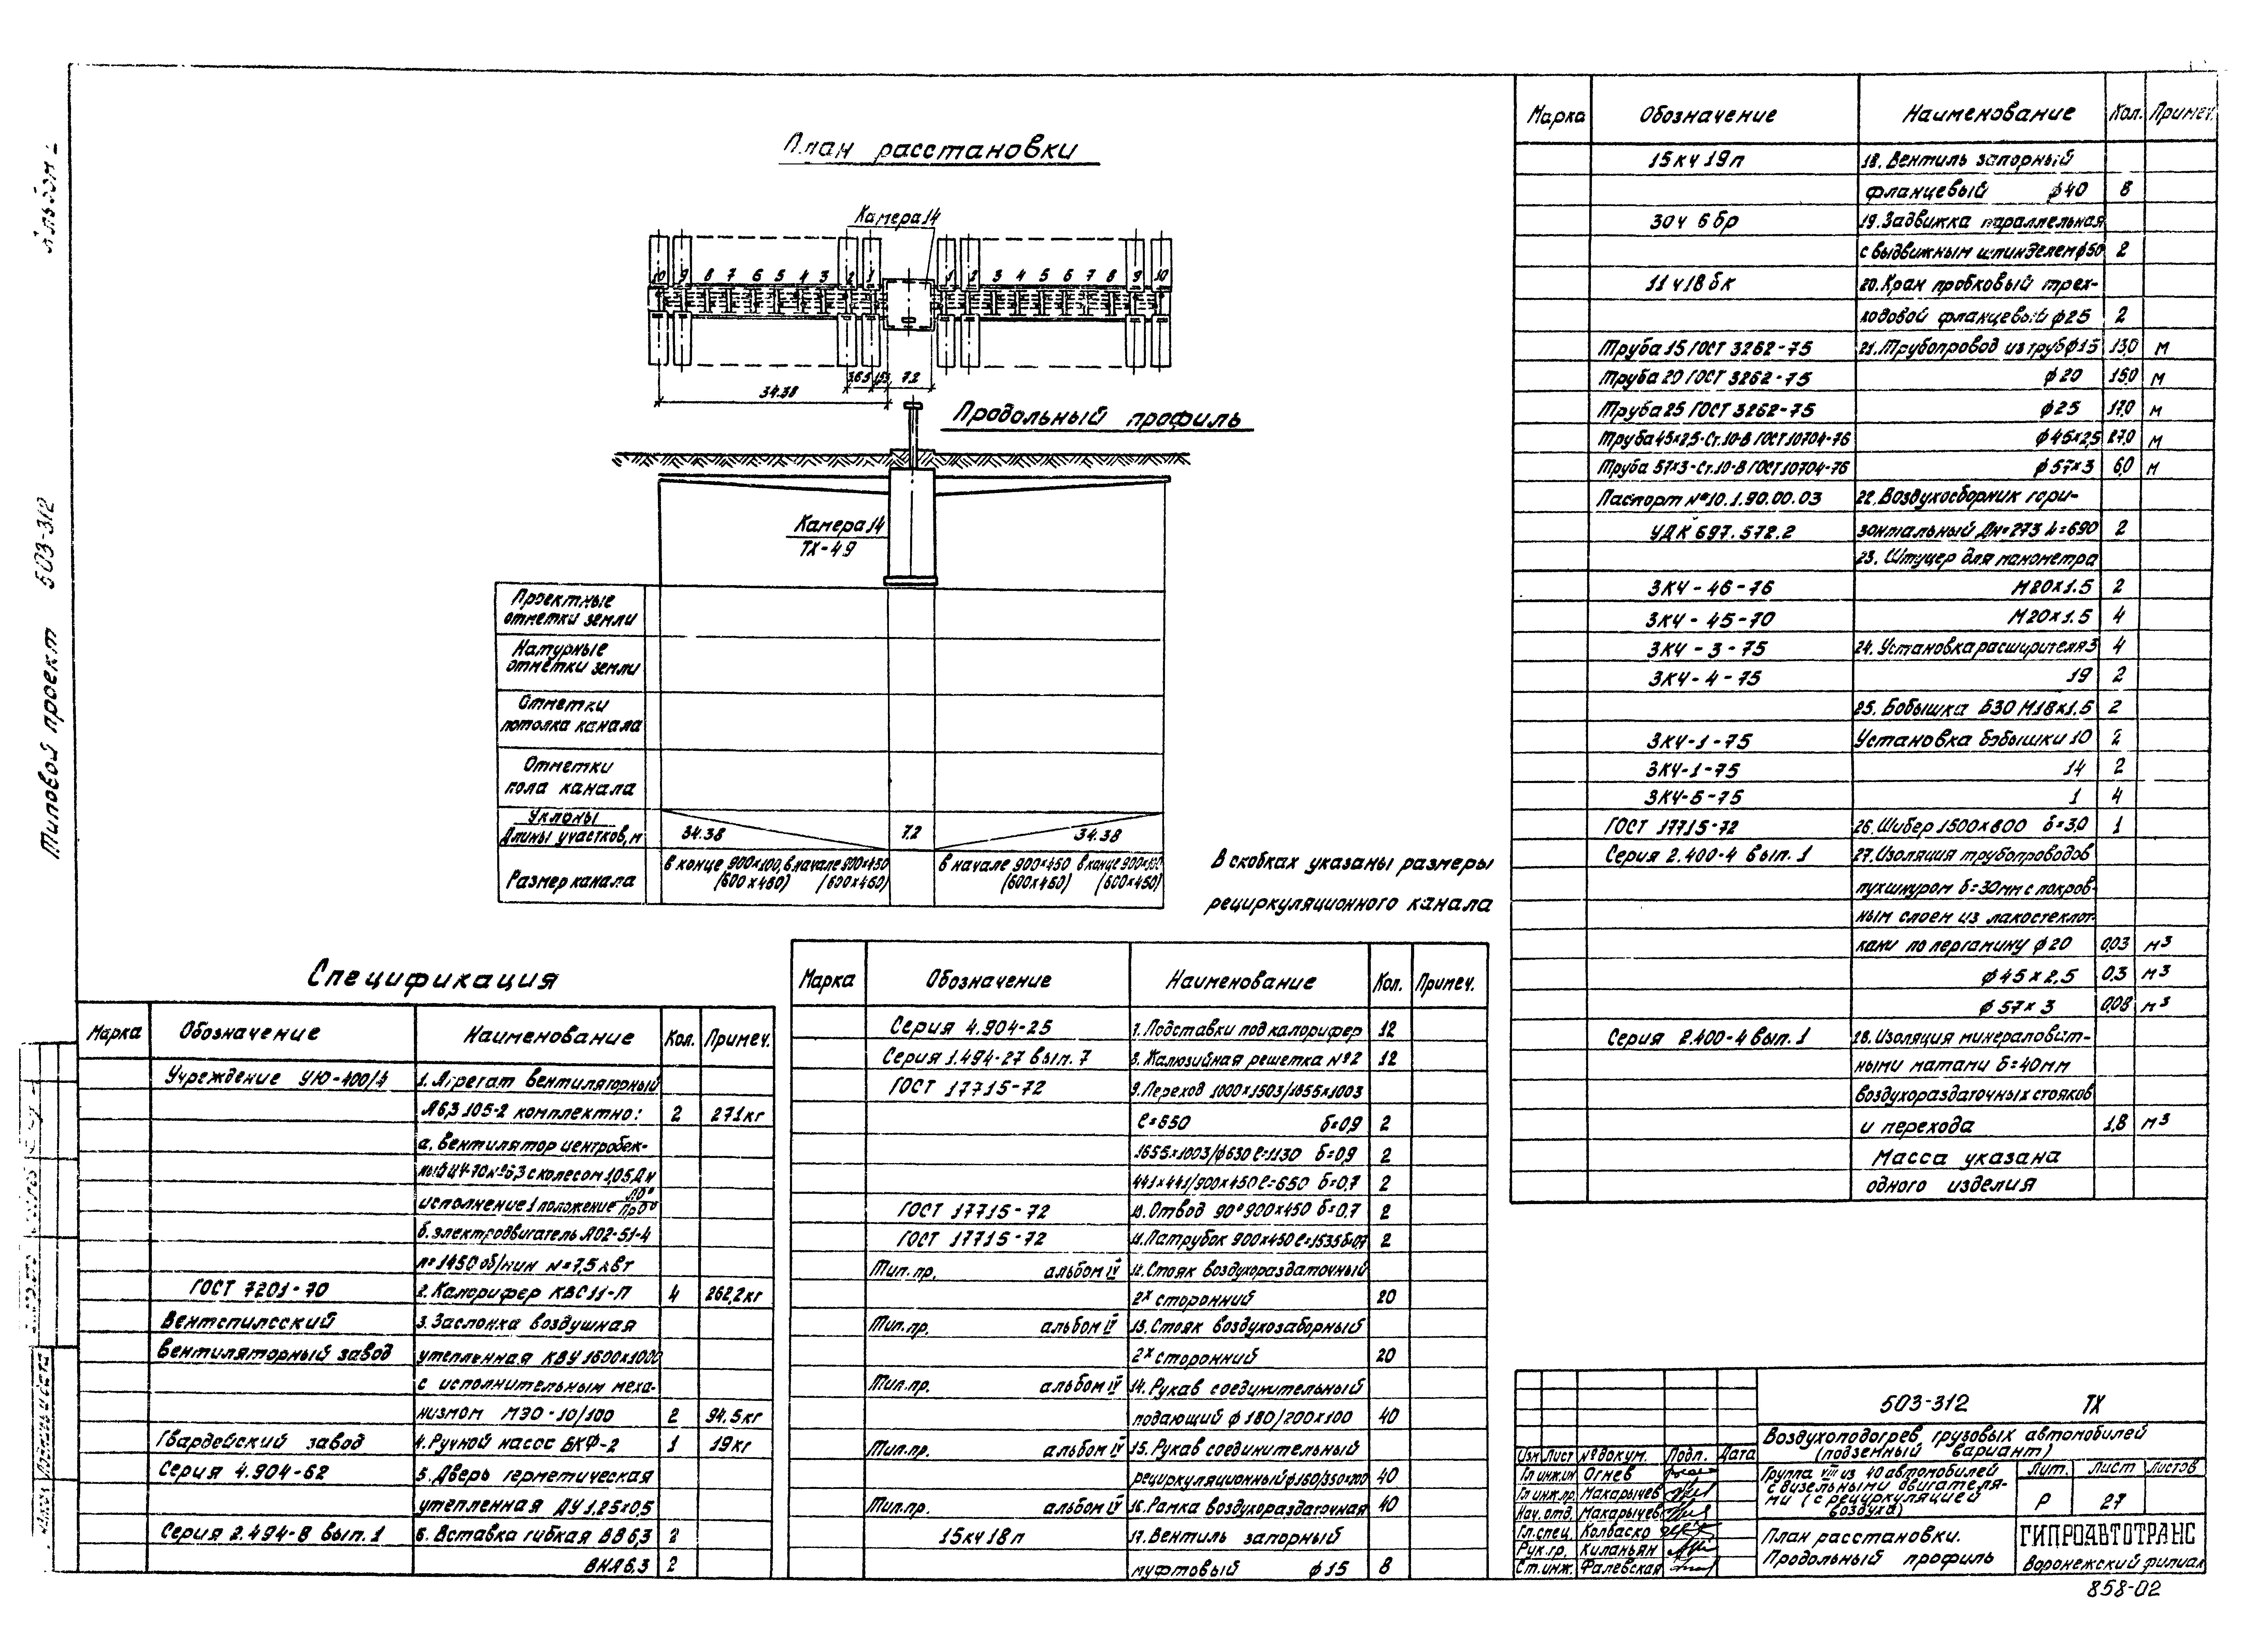 План расстановки
Камера 14
10 9 8 7 6 5 4 3 2 1
1 2 3 4 5 6 7 8 9 10
3.65 7.2
34.38
Продольный профиль
Камера 14
ТХ-49
Проектные
отметки земли
Натурные
отметки земли
Отметки
потолка канала
Отметки
пола канала
Уклоны
Длины участков, м 34.38 7.2 34.38
Размер канала
в конце 900×100, в начале 900×450
(600×460) (600×460)
в начале 900×450 в конце 900×100
(600×460) (600×460)
В скобках указаны размеры
рециркуляционного канала
Типовой проект 503-312
Альбом
Спецификация
Марка Обозначение Наименование Кол. Примеч.
Учреждение УЮ-400/4 1. Агрегат вентиляторный
А6,3 105-2 комплектно: 2 271кг
а. вентилятор центробеж-
ный Ц4-70 №6,3 с колесом 1,05Дн
исполнение 1 положение
б. электродвигатель А02-51-4
n=1450 об/мин N=7,5 квт
ГОСТ 7201-70 2. Калорифер КВС11-П 4 262,2кг
Вентспилсский 3. Заслонка воздушная
вентиляторный завод утепленная КВУ 1600×1000
с исполнительным меха-
низмом МЭО-10/100 2 94.5кг
Гвардейский завод 4. Ручной насос БКФ-2 1 19кг
Серия 4.904-62 5. Дверь герметическая
утепленная ДУ 1.25×0,5
Серия 2.494-8 вып. 1 6. Вставка гибкая ВВ6,3 2
ВНА6,3 2
Марка Обозначение Наименование Кол. Примеч.
Серия 4.904-25 7. Подставки под калорифер 12
Серия 1.494-27 вып. 7 8. Жалюзийная решетка №2 12
ГОСТ 17715-72 9. Переход 1000×1503/1655×1003
ℓ=550 δ=0,9 2
1655×1003/ф630 ℓ=1130 δ=0,9 2
441×441/900×450 ℓ=650 δ=0,7 2
ГОСТ 17715-72 10. Отвод 90° 900×450 δ=0,7 2
ГОСТ 17715-72 11. Патрубок 900×450 ℓ=1535 δ=0,7 2
Тип.пр. альбом IV 12. Стояк воздухораздаточный
2х сторонний 20
Тип.пр. альбом IV 13. Стояк воздухозаборный
2х сторонний 20
Тип.пр. альбом IV 14. Рукав соединительный
подающий ф 180/200×100 40
Тип.пр. альбом IV 15. Рукав соединительный
рециркуляционный 40
Тип.пр. альбом IV 16. Рамка воздухораздаточная 40
15кч 18п 17. Вентиль запорный
муфтовый ф 15 8
Марка Обозначение Наименование Кол. Примеч.
15кч 19п 18. Вентиль запорный
фланцевый ф40 8
30ч 6бр 19. Задвижка параллельная
с выдвижным шпинделем ф50 2
11ч18бк 20. Кран пробковый трех-
ходовой фланцевый ф25 2
Труба 15 ГОСТ 3262-75 21. Трубопровод из труб ф15 13,0 м
Труба 20 ГОСТ 3262-75 ф20 15,0 м
Труба 25 ГОСТ 3262-75 ф25 17,0 м
Труба 45×2,5-Ст.10-В ГОСТ 10704-76 ф45×2,5 27,0 м
Труба 57×3-Ст.10-В ГОСТ 10704-76 ф57×3 6,0 м
Паспорт №10.1.90.00.03 22. Воздухосборник гори-
УДК 697.572.2 зонтальный Дн=273 L=690 2
23. Штуцер для манометра
ЗКЧ-46-76 М20×1.5 2
ЗКЧ-45-70 М20×1.5 4
ЗКЧ-3-75 24. Установка расширителя 3 4
ЗКЧ-4-75 19 2
25. Бобышка Б30 М18×1.5 2
ЗКЧ-1-75 Установка бобышки 10 2
ЗКЧ-1-75 14 2
ЗКЧ-5-75 1 4
ГОСТ 17715-72 26. Шибер 1500×800 δ=3,0 1
Серия 2.400-4 вып. 1 27. Изоляция трубопроводов
пухшнуром δ=30мм с покров-
ным слоем из лакостеклот-
кани по пергамину ф20 0,03 м³
ф45×2,5 0.3 м³
ф57×3 0,08 м³
Серия 2.400-4 вып. 1 28. Изоляция минераловат-
ными матами δ=40мм
воздухораздаточных стояков
и перехода 1,8 м³
Масса указана
одного изделия
503-312 ТХ
Воздухоподогрев грузовых автомобилей
(подземный вариант)
Изм Лист № докум. Подп. Дата
Гл инж.ин Огнев
Гл инж.пр. Макарычев
Нач. отд. Макарычев
Гл.спец. Колбаско
Рук.гр. Киланьян
Ст.инж. Фалевская
Группа VIII из 40 автомобилей
с дизельными двигателя-
ми (с рециркуляцией
воздуха)
Лит. Лист Листов
Р 27
План расстановки.
Продольный профиль
ГИПРОАВТОТРАНС
Воронежский филиал
858-02